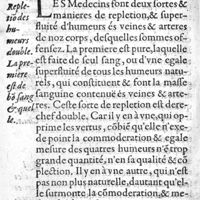 Reple-
tiõ des
hu-
meurs
double.
La pre-
miere
est de
bõ sang
& quel-
le.
LES Medecins font deux sortes &
manieres de repletion,& super-
fluité d'humeurs és veines & arteres
de noz corps, desquelles sommes of-
fensez. La premiere est pure, laquelle
est faite de seul sang, ou d'vne egale
superfluité de tous les humeurs natu-
rels, qui constituent & font la masse
sanguine contenuë és veines & arte-
res. Ceste sorte de repletion est dere-
chef double. Car il y en à vne, qui op-
prime les vertus, cõbiẽ qu'elle n'exce-
de point la commoderation & egale
mesure des quatres humeurs n'ẽ trop
grande quantité, n'en sa qualité & cõ
plection. Il y en à vne autre, qui n'est
pas non plus naturelle, dautant qu'el-
le surmonte la cõmoderation, & me-